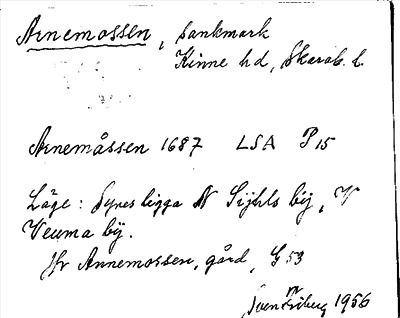 Arnemossen, sankmark
Kinne hd, Skarab. l.
Arnemåssen 1687 LSA P15
Läge: Synes ligga N Sijhls bÿ, V
Veuma bÿ.
Jfr Annemossen, gård, G53
Sven Friberg 1956